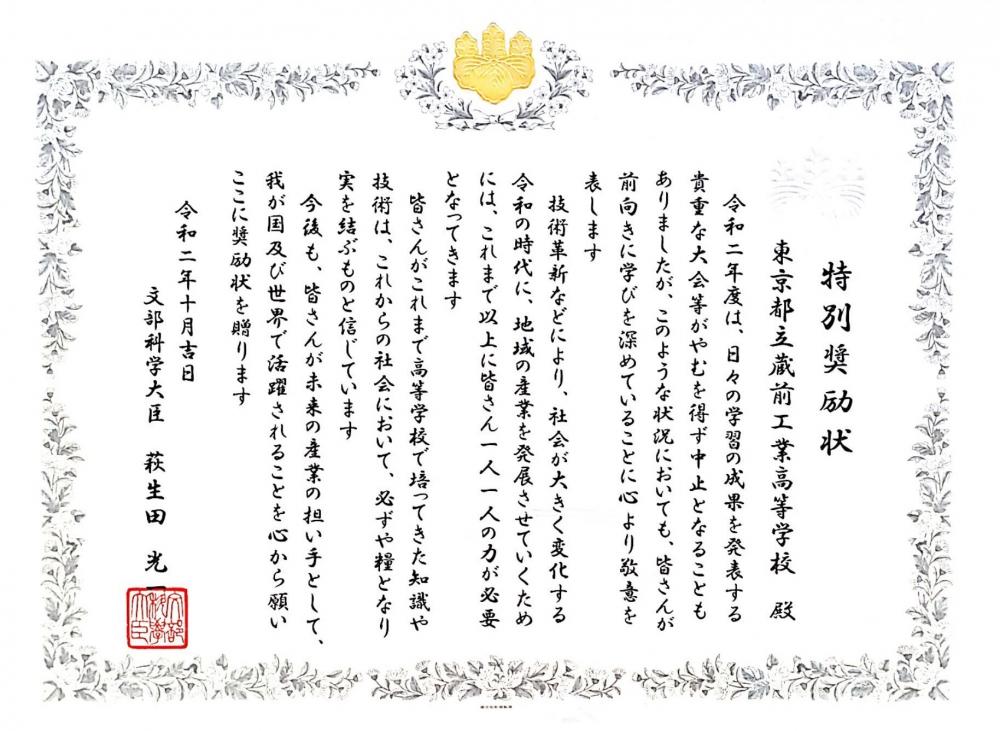 特別奨励状
東京都立蔵前工業高等学校　殿
令和二年度は、日々の学習の成果を発表する
貴重な大会等がやむを得ず中止となることも
ありましたが、このような状況においても、皆さんが
前向きに学びを深めていることに心より敬意を
表します
技術革新などにより、社会が大きく変化する
令和の時代に、地域の産業を発展させていくため
には、これまで以上に皆さん一人一人の力が必要
となってきます
皆さんがこれまで高等学校で培ってきた知識や
技術は、これからの社会において、必ずや糧となり
実を結ぶものと信じています
今後も、皆さんが未来の産業の担い手として、
我が国及び世界で活躍されることを心から願い
ここに奨励状を贈ります
令和二年十月吉日
文部科学大臣　萩生田　光一
文部
科学
大臣